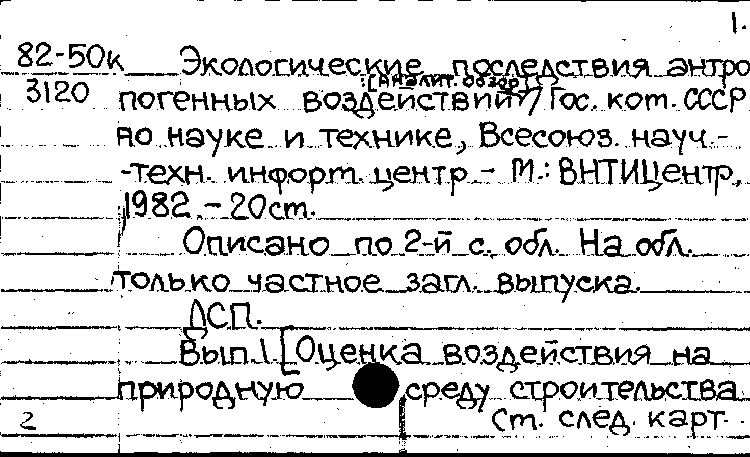 1.
82-50к Экологические последствия антро
:[Аналит. обзор]
3120 погенных воздействий / Гос. ком. СССР
по науке и технике, Всесоюз. науч.-
-техн. информ. центр - М.: ВНТИЦентр,
1982. - 20см.
Описано по 2-й с. обл. На обл.
только частное загл. выпуска.
ДСП.
Вып.1. [Оценка воздействия на
природную среду строительства
2 См. след. карт.